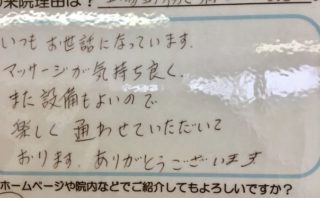 来院理由は？
いつもお世話になっています.
マッサージが気持ち良く.
また設備もよいので
楽しく通わせていただいて
おります. ありがとうございます
ホームページや院内などでご紹介してもよろしいですか？